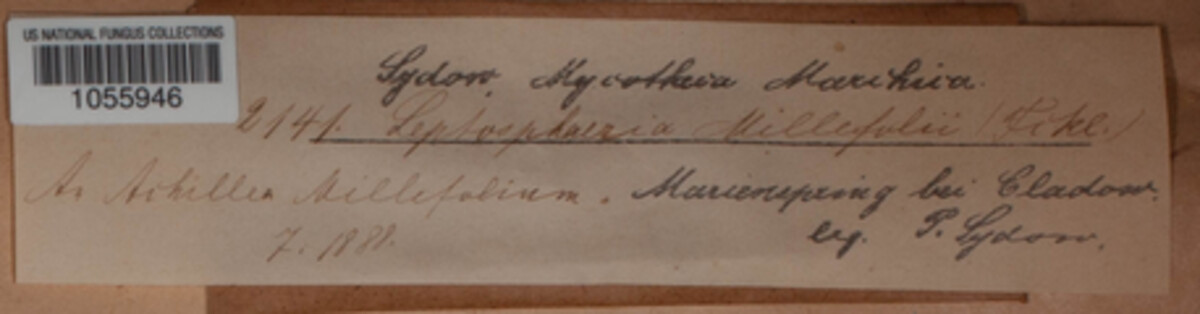 US NATIONAL FUNGUS COLLECTIONS
1055946
Sydow, Mycotheca Marchica.
2141. Leptosphaeria Millefolii (Fckl.)
An Achillea Millefolium. Marienspring bei Cladow.
7. 1888. leg. P. Sydow.